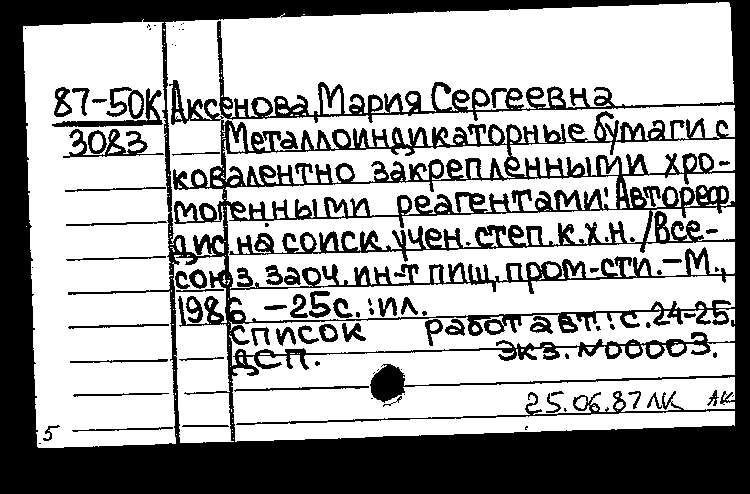 87-50К Аксенова, Мария Сергеевна
3083 Металлоиндикаторные бумаги с
ковалентно закрепленными хро-
могенными реагентами: Автореф.
дис. на соиск. учен. степ. к.х.н. /Все-
союз. заоч. ин-т пищ. пром-сти. - М.,
1986. - 25с. : ил.
список работ авт.: с. 24-25.
ДСП. экз. N00003.
25.06.87 ЛК АК
5